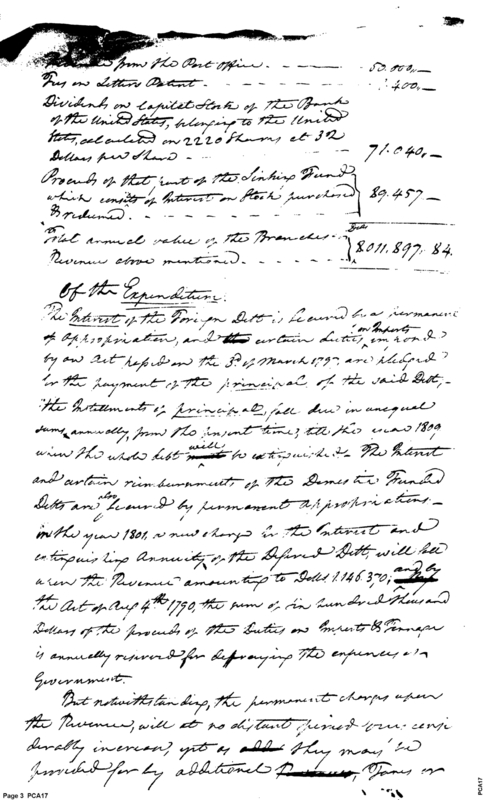 Revenue from the Post Office - - - - 50.000,—
Fees on Letters Patent - - - - - 400,—
Dividends on Capital Stock of the Bank
of the United States, belonging to the United
States, calculated on 2220 Shares at 32
Dollars per Share - - - - - 71.040,—
Proceeds of that part of the Sinking Fund
which consists of Interest on Stock purchased
& redeemed - - - - - 89.457 —
Total annual value of the Branches of
Revenue above mentioned - - - - Dolls 8.011.897. 84.
Of the Expenditure.
The Interest of the Foreign Debt is secured by a permanent
appropriation, and certain duties on Imports, imposed
by an Act passed on the 3d. of March 1797, are pledged
for the payment of the principal of the said Debt,—
the Instalments of principal, fall due in unequal
sums, annually, from the present time, till the year 1809
when the whole debt will be extinguished. The Interest
and certain reimbursements of the Domestic Funded
Debts are also secured by permanent appropriations—
in the year 1801, a new charge for the Interest and
extinguishing Annuity of the Deferred Debt, will fall
upon the Revenue amounting to Dolls 1.146.370; and by
the Act of Aug 4th 1790, the sum of six hundred Thousand
Dollars of the proceeds of the Duties on Imports & Tonnage
is annually reserved for defraying the expences of
Government.
But notwithstanding, the permanent charges upon
the Revenue, will at no distant period very consi
derably increase, yet as they may be
provided for by additional Taxes or
Page 3 PCA17
PCA17